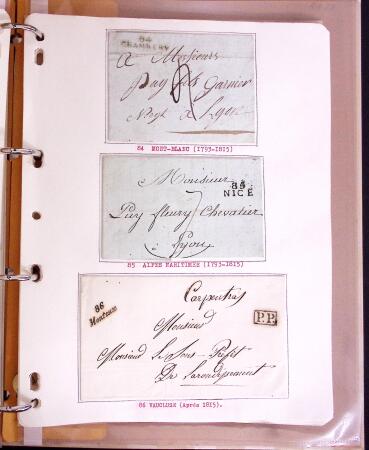 84
CHAMBERY
A Messieurs
Puy fils Garnier
Negt à Lyon
84 MONT-BLANC (1793-1815)
Monsieur
85
NICE
Puy fleury Chevalier
Lyon
85 ALPES MARITIMES (1793-1815)
86
Carpentras
P.P.
Monsieur
Monsieur le Sous-Préfet
De l'arrondissement
86 VAUCLUSE (Après 1815).